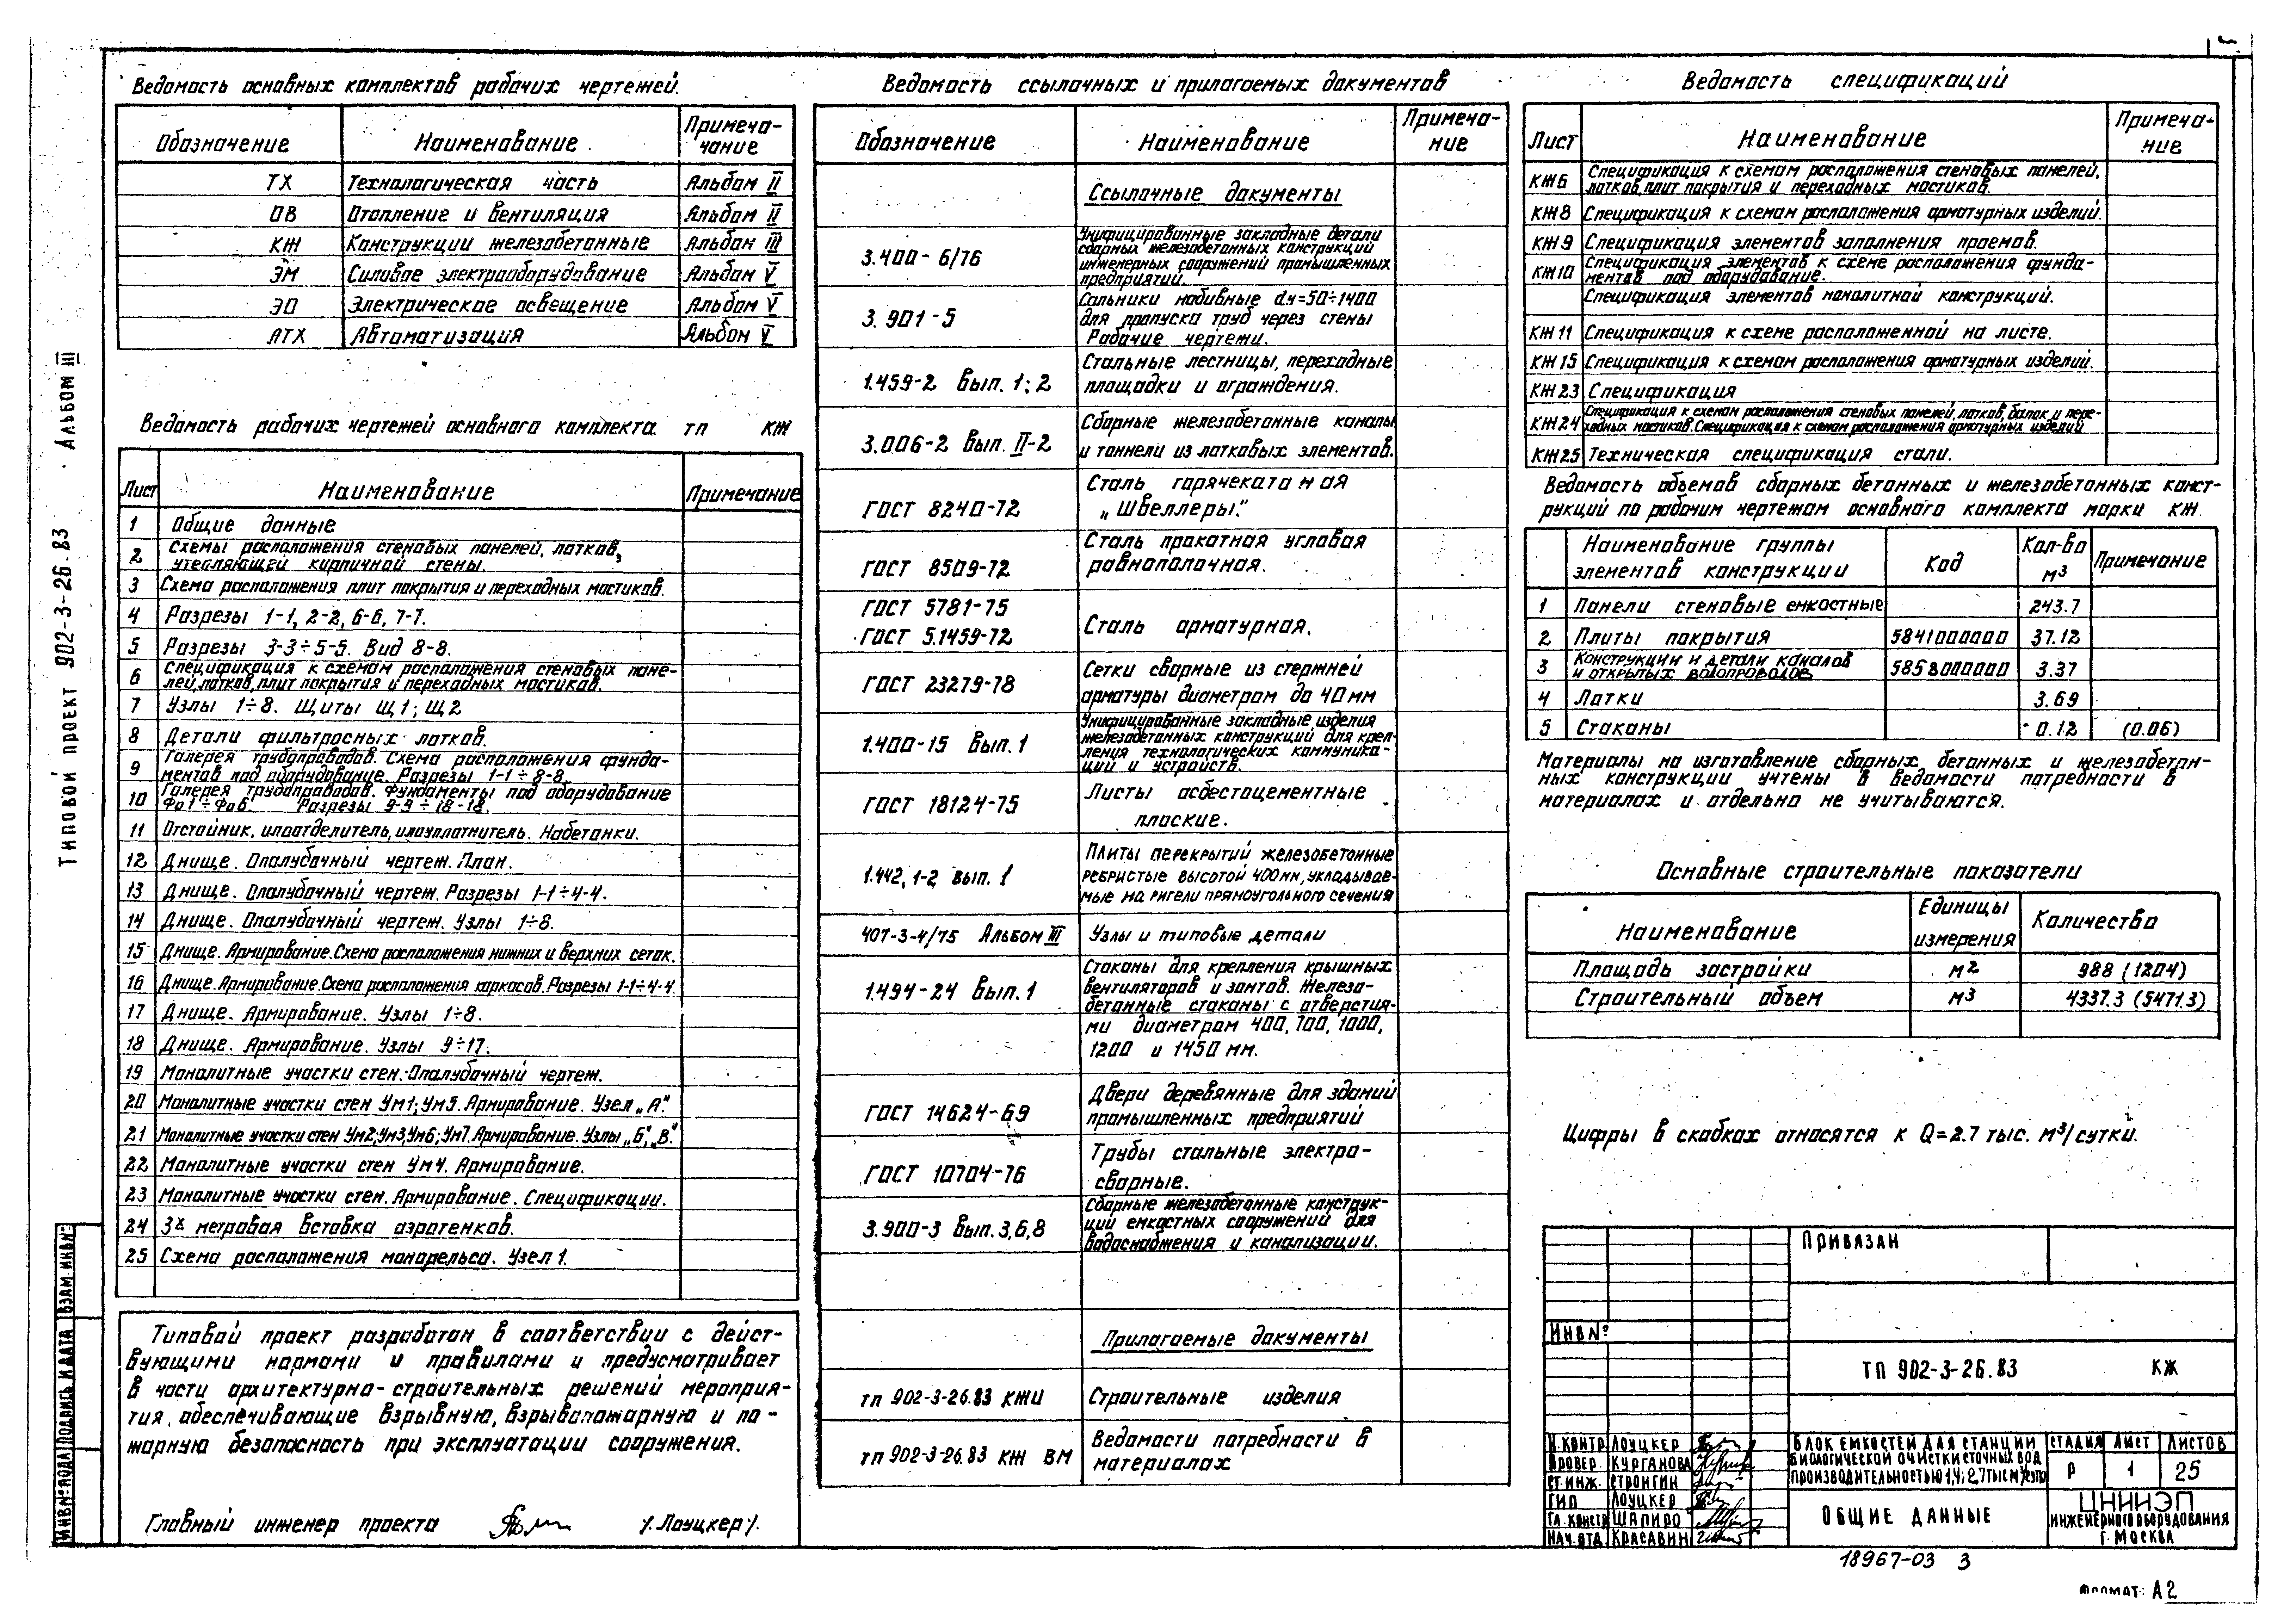 Ведомость основных комплектов рабочих чертежей.
Обозначение Наименование Примеча-
чание
ТХ Технологическая часть Альбом II
ОВ Отопление и вентиляция Альбом II
КЖ Конструкции железобетонные Альбом III
ЭМ Силовое электрооборудование Альбом V
ЭО Электрическое освещение Альбом V
АТХ Автоматизация Альбом V
Ведомость рабочих чертежей основного комплекта ТП КЖ
Лист Наименование Примечание
1 Общие данные
2 Схемы расположения стеновых панелей, лотков,
утепляющей кирпичной стены.
3 Схема расположения плит покрытия и переходных мостиков.
4 Разрезы 1-1, 2-2, 6-6, 7-7.
5 Разрезы 3-3÷5-5. Вид 8-8.
6 Спецификация к схемам расположения стеновых пане-
лей, лотков, плит покрытия и переходных мостиков.
7 Узлы 1÷8. Щиты Щ1; Щ2
8 Детали фильтросных лотков.
9 Галерея трубопроводов. Схема расположения фунда-
ментов под оборудование. Разрезы 1-1÷8-8.
10 Галерея трубопроводов. Фундаменты под оборудование
Фо1÷Фо6. Разрезы 9-9÷18-18.
11 Отстойник, илоотделитель, илоуплотнитель. Набетонки.
12 Днище. Опалубочный чертеж. План.
13 Днище. Опалубочный чертеж. Разрезы 1-1÷4-4.
14 Днище. Опалубочный чертеж. Узлы 1÷8.
15 Днище. Армирование. Схема расположения нижних и верхних сеток.
16 Днище. Армирование. Схема расположения каркасов. Разрезы 1-1÷4-4.
17 Днище. Армирование. Узлы 1÷8.
18 Днище. Армирование. Узлы 9÷17.
19 Монолитные участки стен. Опалубочный чертеж.
20 Монолитные участки стен Ум1; Ум5. Армирование. Узел „А".
21 Монолитные участки стен Ум2; Ум3; Ум6; Ум7. Армирование. Узлы „Б", „В".
22 Монолитные участки стен Ум4. Армирование.
23 Монолитные участки стен. Армирование. Спецификации.
24 3х метровая вставка аэротенков.
25 Схема расположения монорельса. Узел 1.
Типовой проект разработан в соответствии с дейст-
вующими нормами и правилами и предусматривает
в части архитектурно-строительных решений мероприя-
тия, обеспечивающие взрывную, взрывопожарную и по-
жарную безопасность при эксплуатации сооружения.
Главный инженер проекта /Лоуцкер/.
Ведомость ссылочных и прилагаемых документов
Обозначение Наименование Примеча-
ние
Ссылочные документы
3.400-6/76 Унифицированные закладные детали
сборных железобетонных конструкций
инженерных сооружений промышленных
предприятий.
3.901-5 Сальники набивные dу=50÷1400
для пропуска труб через стены
Рабочие чертежи.
1.459-2 Вып. 1; 2 Стальные лестницы, переходные
площадки и ограждения.
3.006-2 Вып. II-2 Сборные железобетонные каналы
и тоннели из лотковых элементов.
ГОСТ 8240-72 Сталь горячекатаная
„Швеллеры".
ГОСТ 8509-72 Сталь прокатная угловая
равнополочная.
ГОСТ 5781-75
ГОСТ 5.1459-72 Сталь арматурная.
ГОСТ 23279-78 Сетки сварные из стержней
арматуры диаметром до 40 мм
1.400-15 Вып. 1 Унифицированные закладные изделия
железобетонных конструкций для креп-
ления технологических коммуника-
ций и устройств.
ГОСТ 18124-75 Листы асбестоцементные
плоские.
1.442, 1-2 вып. 1 Плиты перекрытий железобетонные
ребристые высотой 400 мм, укладывае-
мые на ригели прямоугольного сечения
407-3-4/75 Альбом III Узлы и типовые детали
1.494-24 Вып. 1 Стаканы для крепления крышных
вентиляторов и зонтов. Железо-
бетонные стаканы с отверстия-
ми диаметром 400, 700, 1000,
1200 и 1450 мм.
ГОСТ 14624-69 Двери деревянные для зданий
промышленных предприятий
ГОСТ 10704-76 Трубы стальные электро-
сварные.
3.900-3 Вып. 3,6,8 Сборные железобетонные конструк-
ций емкостных сооружений для
водоснабжения и канализации.
Прилагаемые документы
ТП 902-3-26.83 КЖИ Строительные изделия
ТП 902-3-26.83 КЖ ВМ Ведомости потребности в
материалах
Ведомость спецификаций
Лист Наименование Примеча-
ние
КЖ6 Спецификация к схемам расположения стеновых панелей,
лотков, плит покрытия и переходных мостиков.
КЖ8 Спецификация к схемам расположения арматурных изделий.
КЖ9 Спецификация элементов заполнения проемов.
КЖ10 Спецификация элементов к схеме расположения фунда-
ментов под оборудование.
Спецификация элементов монолитной конструкций.
КЖ11 Спецификация к схеме расположенной на листе.
КЖ15 Спецификация к схемам расположения арматурных изделий.
КЖ23 Спецификация
КЖ24 Спецификация к схемам расположения стеновых панелей, лотков, балок и пере-
ходных мостиков. Спецификация к схемам расположения арматурных изделий
КЖ25 Техническая спецификация стали.
Ведомость объемов сборных бетонных и железобетонных конст-
рукций по рабочим чертежам основного комплекта марки КЖ.
Наименование группы
элементов конструкции Код Кол-во
м3 Примечание
1 Панели стеновые емкостные 243.7
2 Плиты покрытия 5841000000 37.12
3 Конструкции и детали каналов
и открытых водопроводов 5858000000 3.37
4 Лотки 3.69
5 Стаканы 0.12 (0.06)
Материалы на изготовление сборных бетонных и железобетон-
ных конструкции учтены в ведомости потребности в
материалах и отдельно не учитываются.
Основные строительные показатели
Наименование Единицы
измерения Количество
Площадь застройки м2 988 (1204)
Строительный объем м3 4337.3 (5471.3)
Цифры в скобках относятся к Q=2.7 тыс. м3/сутки.
Привязан
Инв №
ТП 902-3-26.83 КЖ
Н.контр Лоуцкер
Провер. Курганова
Ст.инж. Стронгин
ГИП Лоуцкер
Гл.констр Шапиро
Нач.отд. Красавин
Блок емкостей для станции
биологической очистки сточных вод
производительностью 1,4; 2,7 тыс м3/сутки
Стадия Лист Листов
Р 1 25
Общие данные
ЦНИИЭП
инженерного оборудования
г. Москва
18967-03 3
Формат: А2
Типовой проект 902-3-26.83 Альбом III
Инв № подл Подпись и дата Взам.инв №